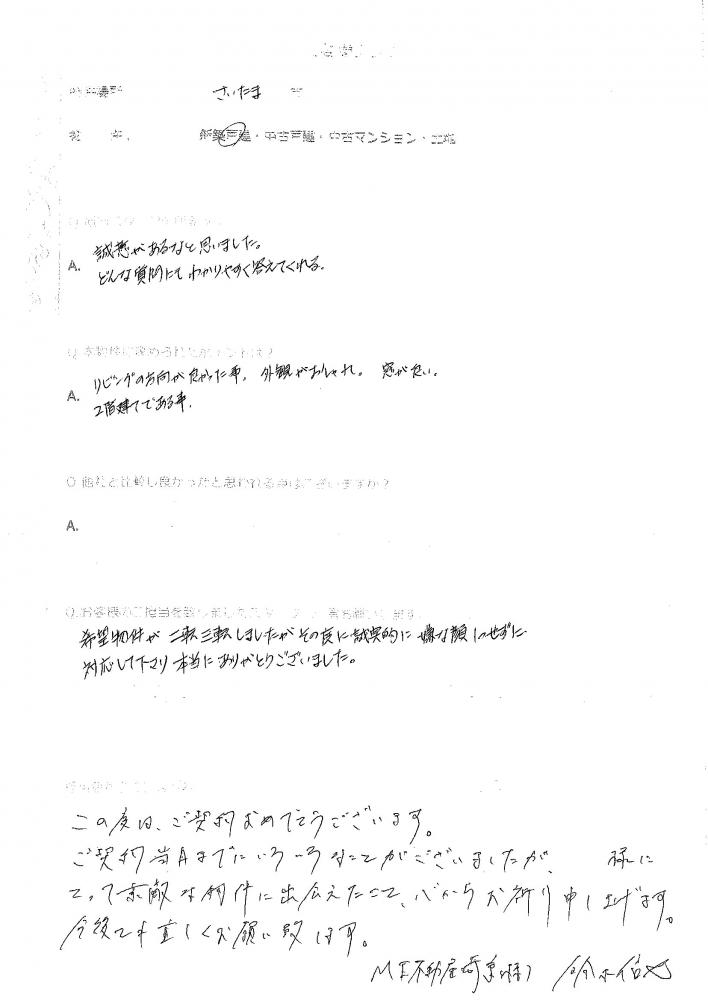 さいたま 市
新築戸建・中古戸建・中古マンション・土地
A. 誠意があるなと思いました。
どんな質問にもわかりやすく答えてくれる。
Q.本物件に決められたポイントは？
A. リビングの方向が良かった事。外観がおしゃれ。窓が広い。
2階建てである事。
Q.他社と比較し良かったと思われる事はございますか？
A.
希望物件が二転三転しましたがその度に誠実的に嫌な顔1つせずに
対応して下さり本当にありがとうございました。
この度は、ご契約おめでとうございます。
ご契約当日までにいろいろなことがございましたが、 様に
とって素敵な物件に出会えたこと、心からお祈り申し上げます。
今後とも宜しくお願い致します。
不動産